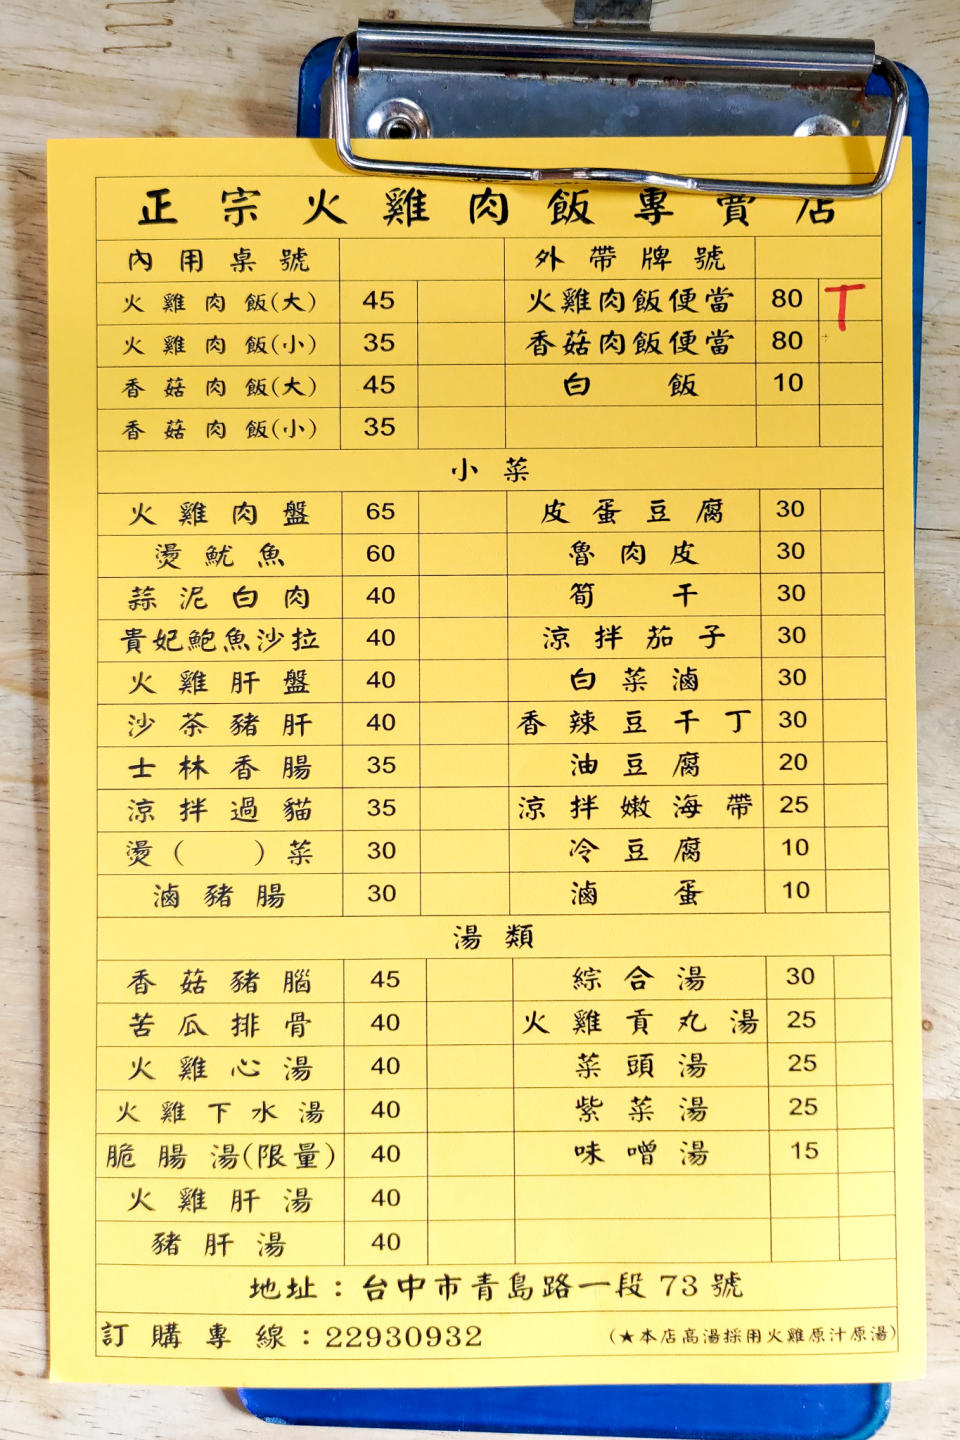 正宗火雞肉飯專賣店
內用桌號 外帶牌號
火雞肉飯(大) 45 火雞肉飯便當 80 T
火雞肉飯(小) 35 香菇肉飯便當 80
香菇肉飯(大) 45 白飯 10
香菇肉飯(小) 35
小菜
火雞肉盤 65 皮蛋豆腐 30
燙魷魚 60 魯肉皮 30
蒜泥白肉 40 筍干 30
貴妃鮑魚沙拉 40 涼拌茄子 30
火雞肝盤 40 白菜滷 30
沙茶豬肝 40 香辣豆干丁 30
士林香腸 35 油豆腐 20
涼拌過貓 35 涼拌嫩海帶 25
燙( )菜 30 冷豆腐 10
滷豬腸 30 滷蛋 10
湯類
香菇豬腦 45 綜合湯 30
苦瓜排骨 40 火雞貢丸湯 25
火雞心湯 40 菜頭湯 25
火雞下水湯 40 紫菜湯 25
脆腸湯(限量) 40 味噌湯 15
火雞肝湯 40
豬肝湯 40
地址：台中市青島路一段73號
訂購專線：22930932 (★本店高湯採用火雞原汁原湯)